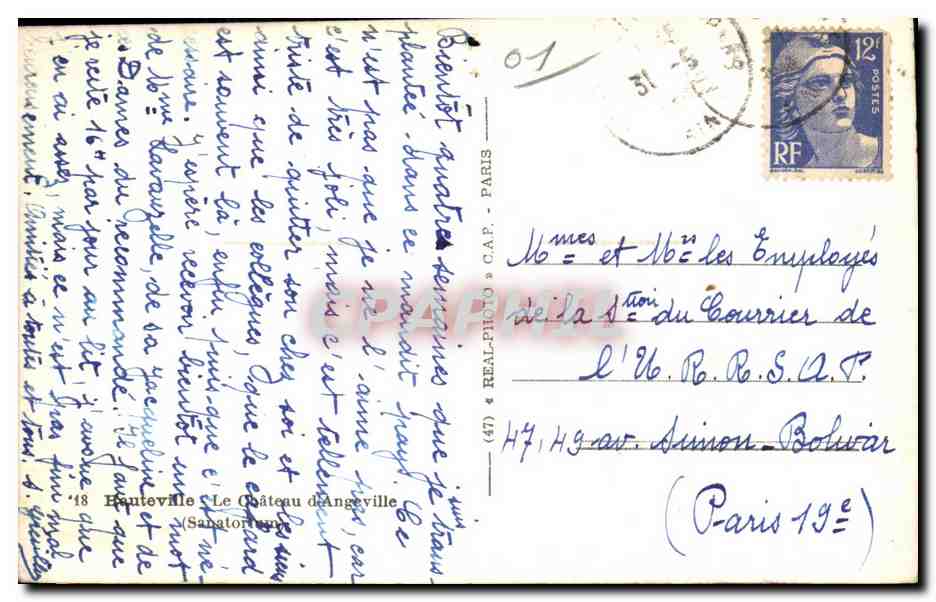 Bientôt quatre semaines que je suis trans-
plantée dans ce maudit pays. Ce
n'est pas que je ne l'aime pas, car
c'est très joli, mais c'est tellement
triste de quitter son chez soi et les siens
ainsi que les collègues, que le cafard
est souvent là, enfin puis-que c'est né-
cessaire. J'espère recevoir bientôt un mot
de Mme Lavauzelle, de sa Jacqueline et de
ces Dames du recommandé. Il faut que
je reste 16H par jour au lit, j'avoue que
j'en ai assez, mais ce n'est pas
Amitiés à toutes et tous.
18 Hauteville - Le Château d'Angeville
(Sanatorium)
(47) « REAL-PHOTO » C.A.P. - PARIS
01
31
12F
POSTES
RF
Mmes et Mrs les Employés
de la Stion du Courrier de
l'U.R.R.S.A.F.
47, 49 av. Simon-Bolivar
(Paris 19e)
CPAPHIL